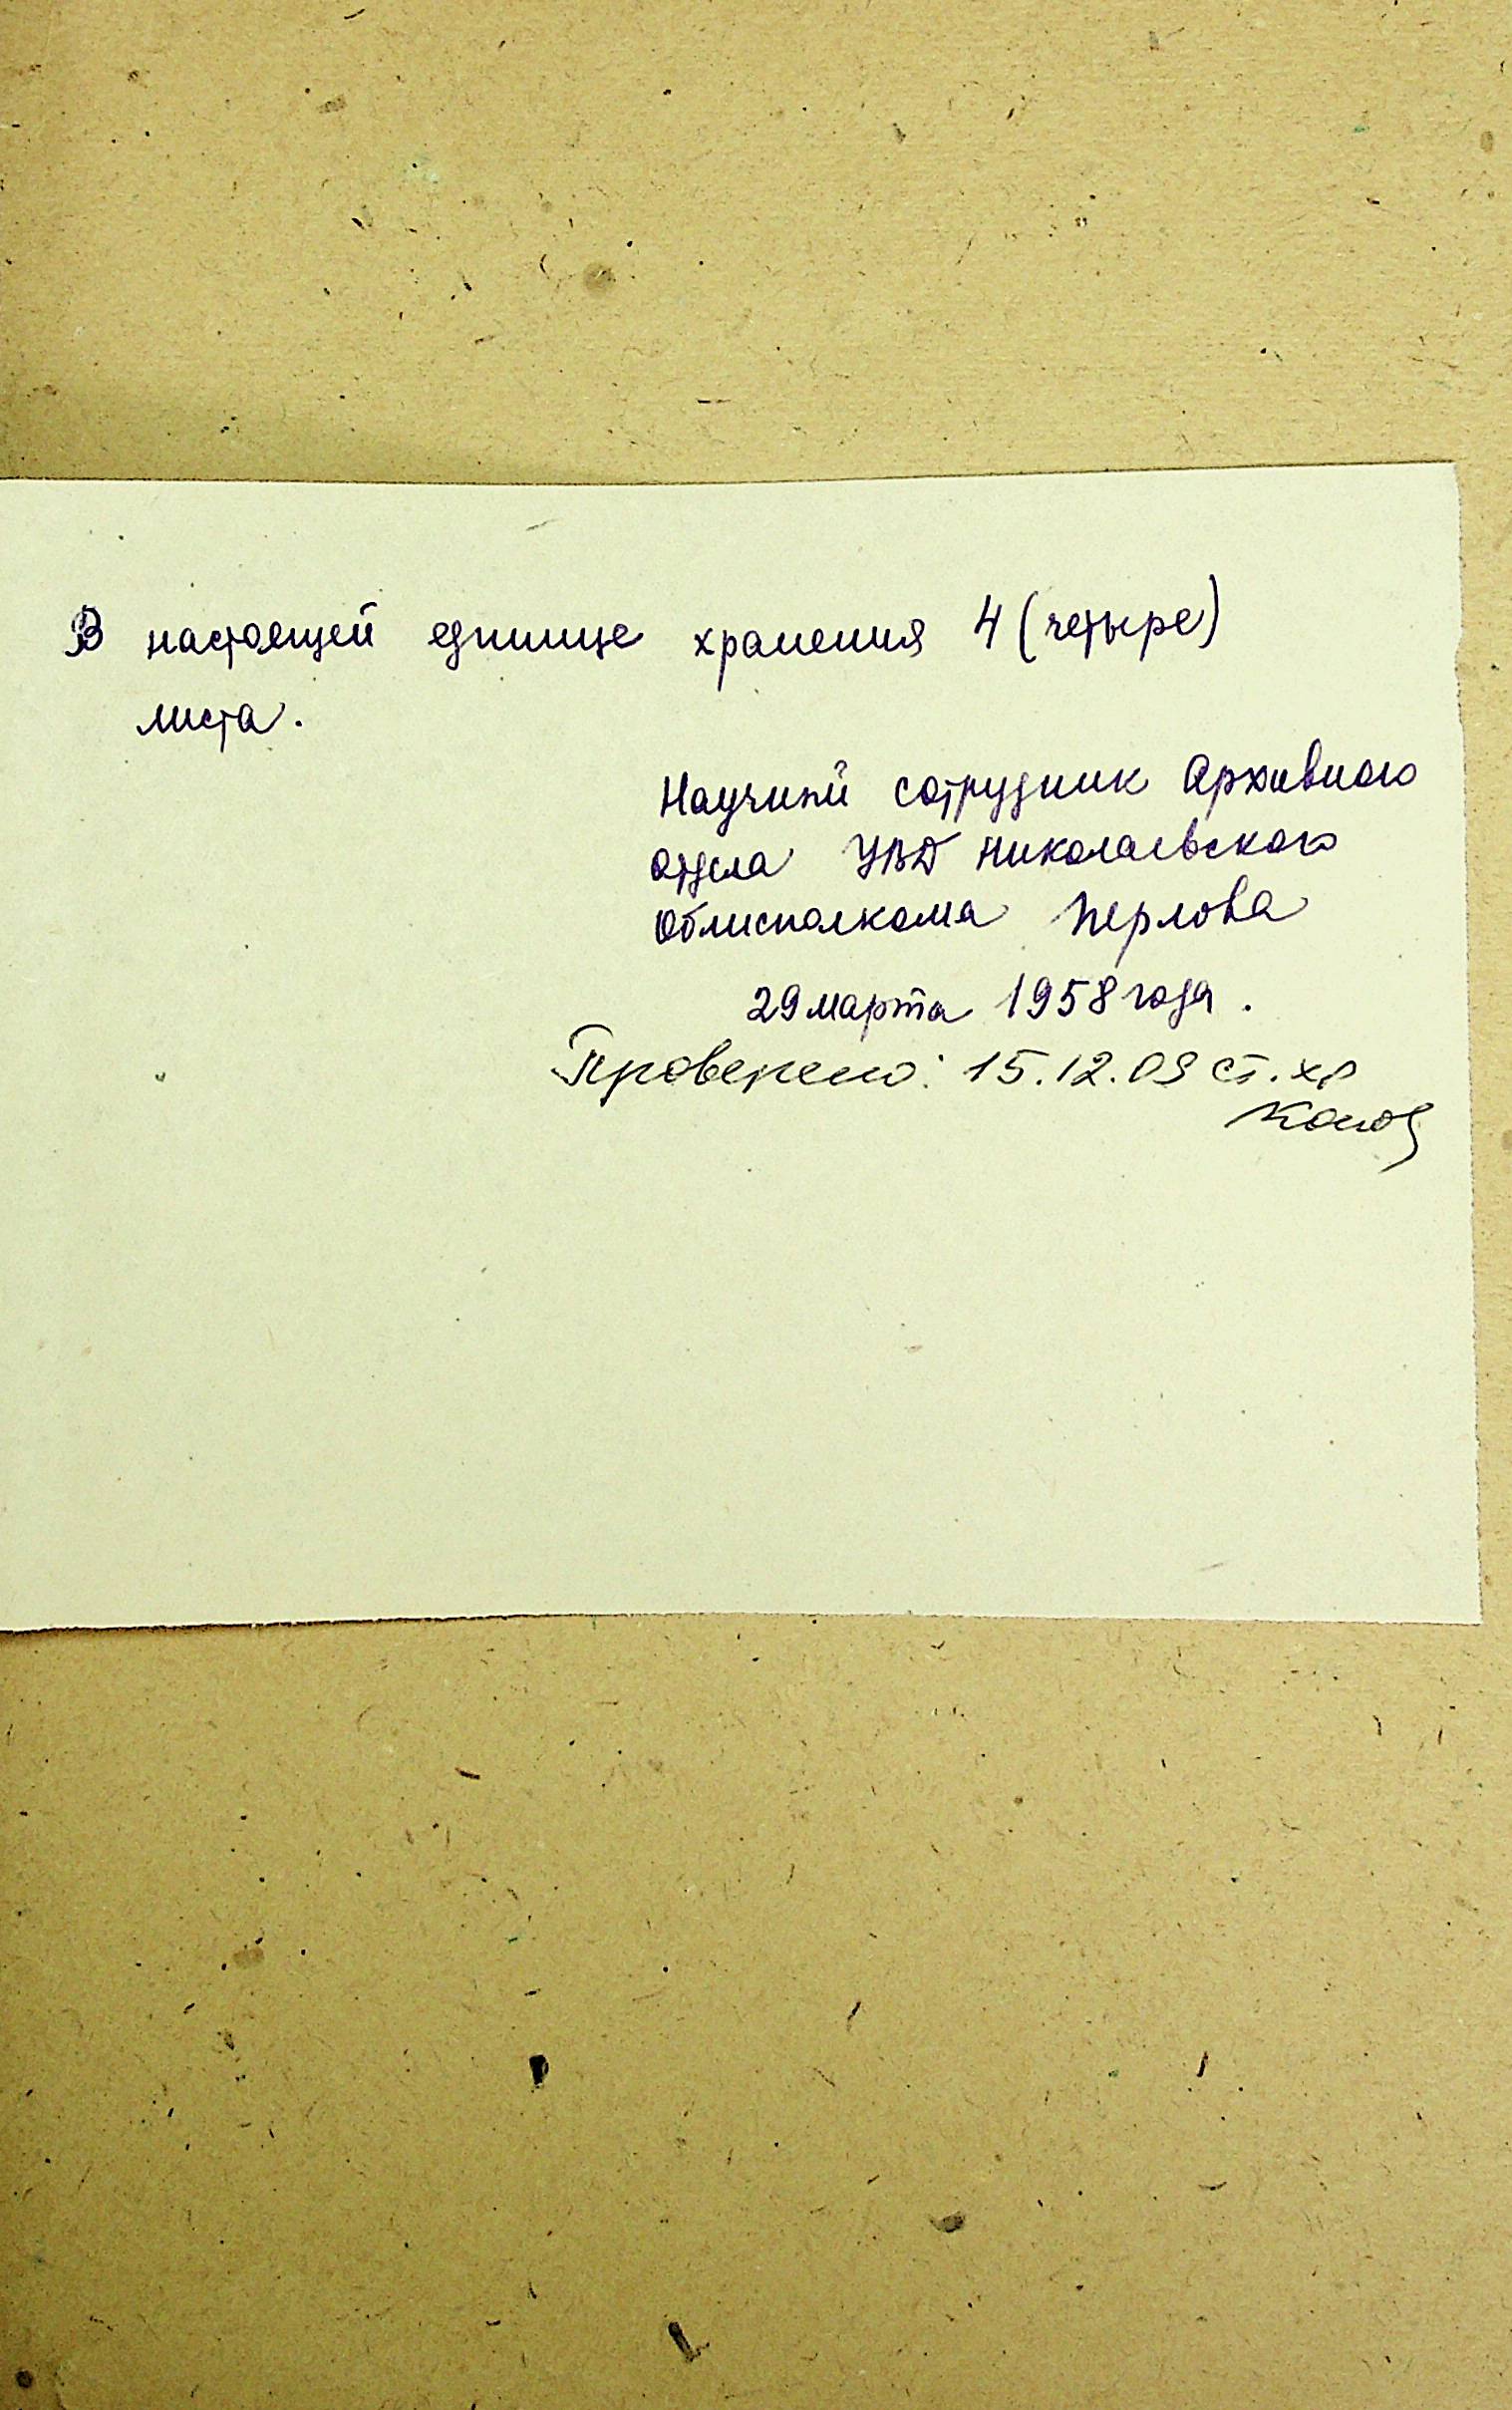 В настоящей единице хранения 4 (четыре)
листа.
Научный сотрудник Архивного
отдела УВД Николаевского
Облисполкома Перлова
29 марта 1958 года.
Проверено: 15.12.09 ст. хр